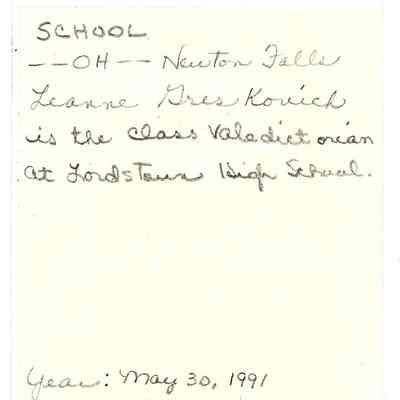 SCHOOL
--OH-- Newton Falls
Leanne Gres Kovich
is the class Valedictorian
at Lordstown High School.
Year: May 30, 1991